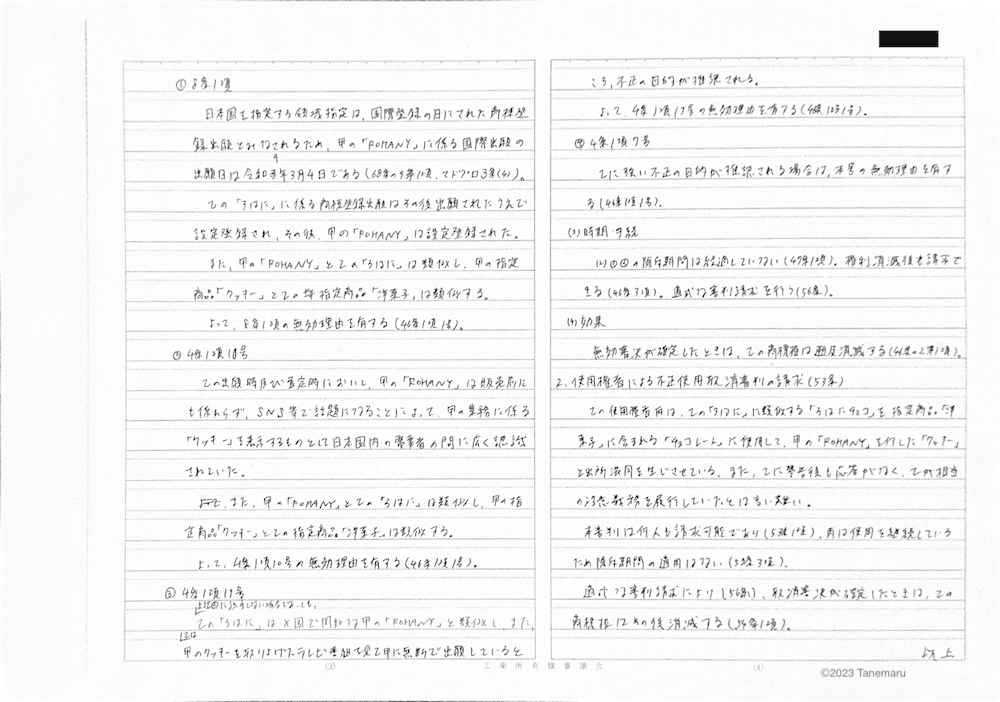 ① 8条1項
日本国を指定する領域指定は、国際登録の日にされた商標登
録出願とみなされるため、甲の「ROHANY」に係る国際出願の
出願日は令和3年3月4日である(68条の9第1項、マドプロ3条(4))。
乙の「ろはに」に係る商標登録出願はその後出願されたうえで
設定登録され、その後、甲の「ROHANY」は設定登録された。
また、甲の「ROHANY」と乙の「ろはに」は類似し、甲の指定
商品「クッキー」と乙の指定商品「洋菓子」は類似する。
よって、8条1項の無効理由を有する(46条1項1号)。
② 4条1項10号
乙の出願時及び査定時において、甲の「ROHANY」は販売前に
も係わらず、SNS等で話題になることによって、甲の業務に係る
「クッキー」を表示するものとして日本国内の需要者の間に広く認識
されていた。
また、甲の「ROHANY」と乙の「ろはに」は類似し、甲の指
定商品「クッキー」と乙の指定商品「洋菓子」は類似する。
よって、4条1項10号の無効理由を有する(46条1項1号)。
③ 4条1項19号
乙の「ろはに」はX国で周知な甲の「ROHANY」と類似し、また、
乙は
甲のクッキーを取り上げたテレビ番組を見て甲に無断で出願していると
(3)
工業所有権審議会
ころ、不正の目的が推認される。
よって、4条1項19号の無効理由を有する(46条1項1号)。
④ 4条1項7号
乙に強い不正の目的が推認される場合は、本号の無効理由を有す
る(46条1項1号)。
(3) 時期・手続
(2)①②の除斥期間は経過していない(47条1項)。権利消滅後も請求で
きる(46条3項)。適式な審判請求を行う(56条)。
(4) 効果
無効審決が確定したときは、乙の商標権は遡及消滅する(46条の2第1項)。
2. 使用権者による不正使用取消審判の請求(53条)
乙の使用権者丙は、乙の「ろはに」に類似する「ろはにチョコ」を指定商品「洋
菓子」に含まれる「チョコレート」に使用して、甲の「ROHANY」を付した「クッキー」
と出所混同を生じさせている。また、乙に警告後も応答がなく、乙が相当
の注意義務を履行していたとは言い難い。
本審判は何人も請求可能であり(53条1項)、丙は使用を継続している
ため除斥期間の適用はない(53条3項)。
適式な審判請求により(56条)、取消審決が確定したときは、乙の
商標権はその後消滅する(54条1項)。
以上
(4)
©2023 Tanemaru